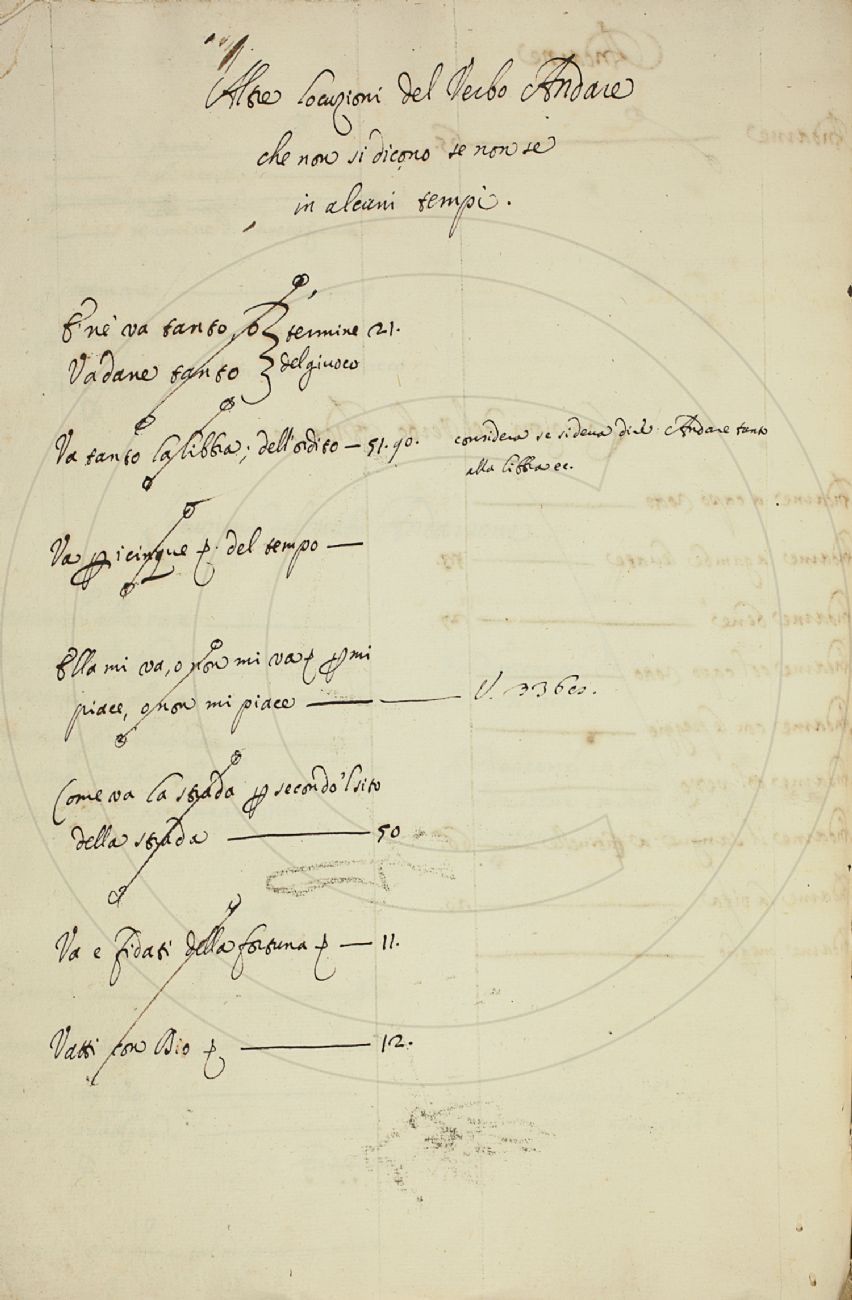 Altre locuzioni del Verbo Andare
che non si dicono se non se
in alcuni tempi.
E' ne va tanto, o termine 21.
Vadane tanto del giuoco
Va tanto la libbra; dell'ordito — 51. 90. considera se si deva dire Andare tanto
alla libbra ec.
Va p i cinque p. del tempo —
Ella mi va, o non mi va p mi
piace, o non mi piace — V. 336
Come va la strada p secondo 'l sito
della strada — 50
Va e fidati della fortuna — 11.
Vatti con Dio — 12.